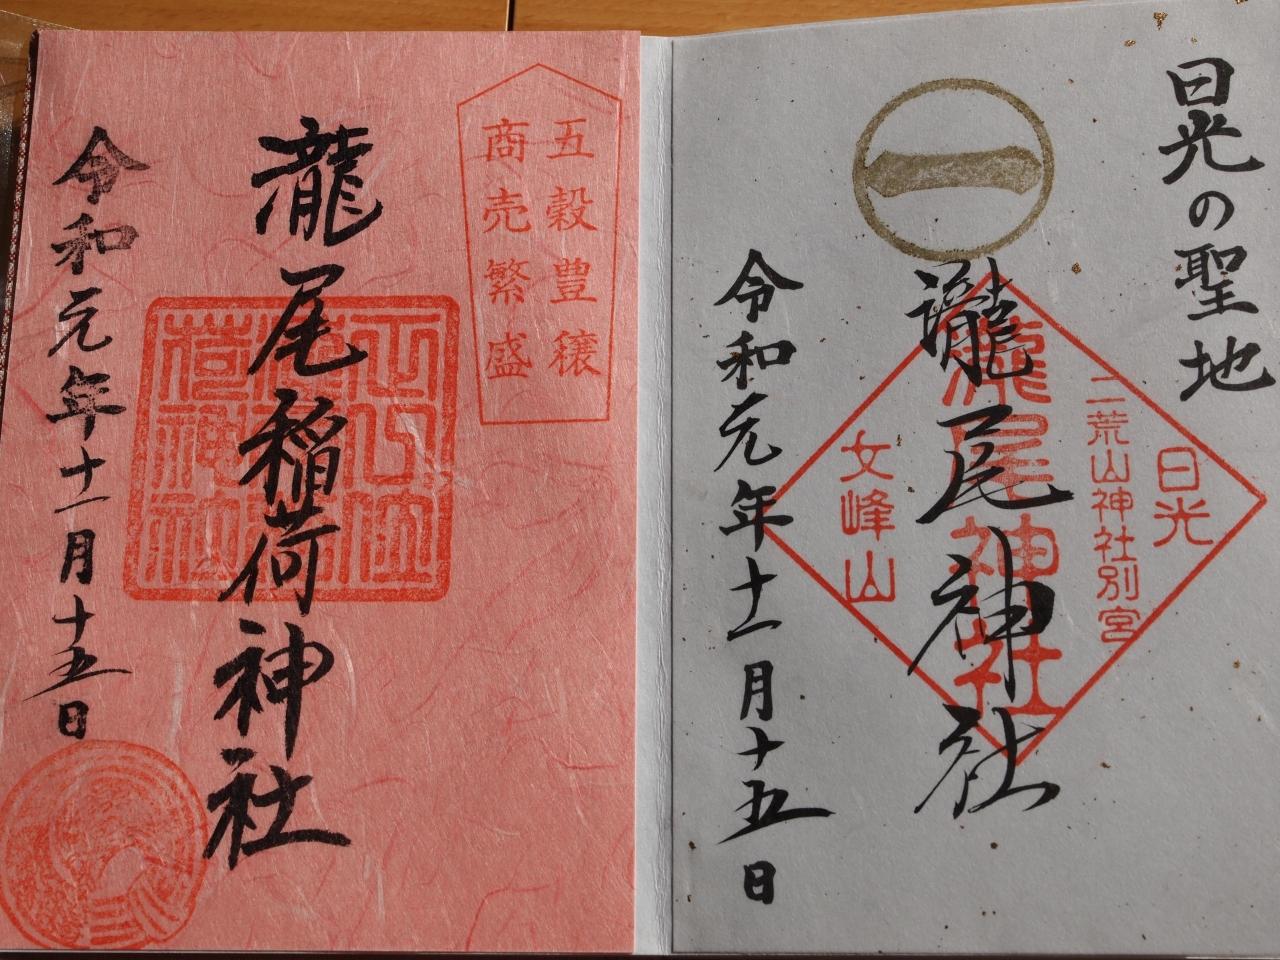 日光の聖地
日光
二荒山神社別宮
瀧尾神社
瀧尾神社
女峰山
令和元年十一月十五日
五穀豊穣
商売繁盛
瀧尾稲荷神社
稲荷神社
令和元年十一月十五日